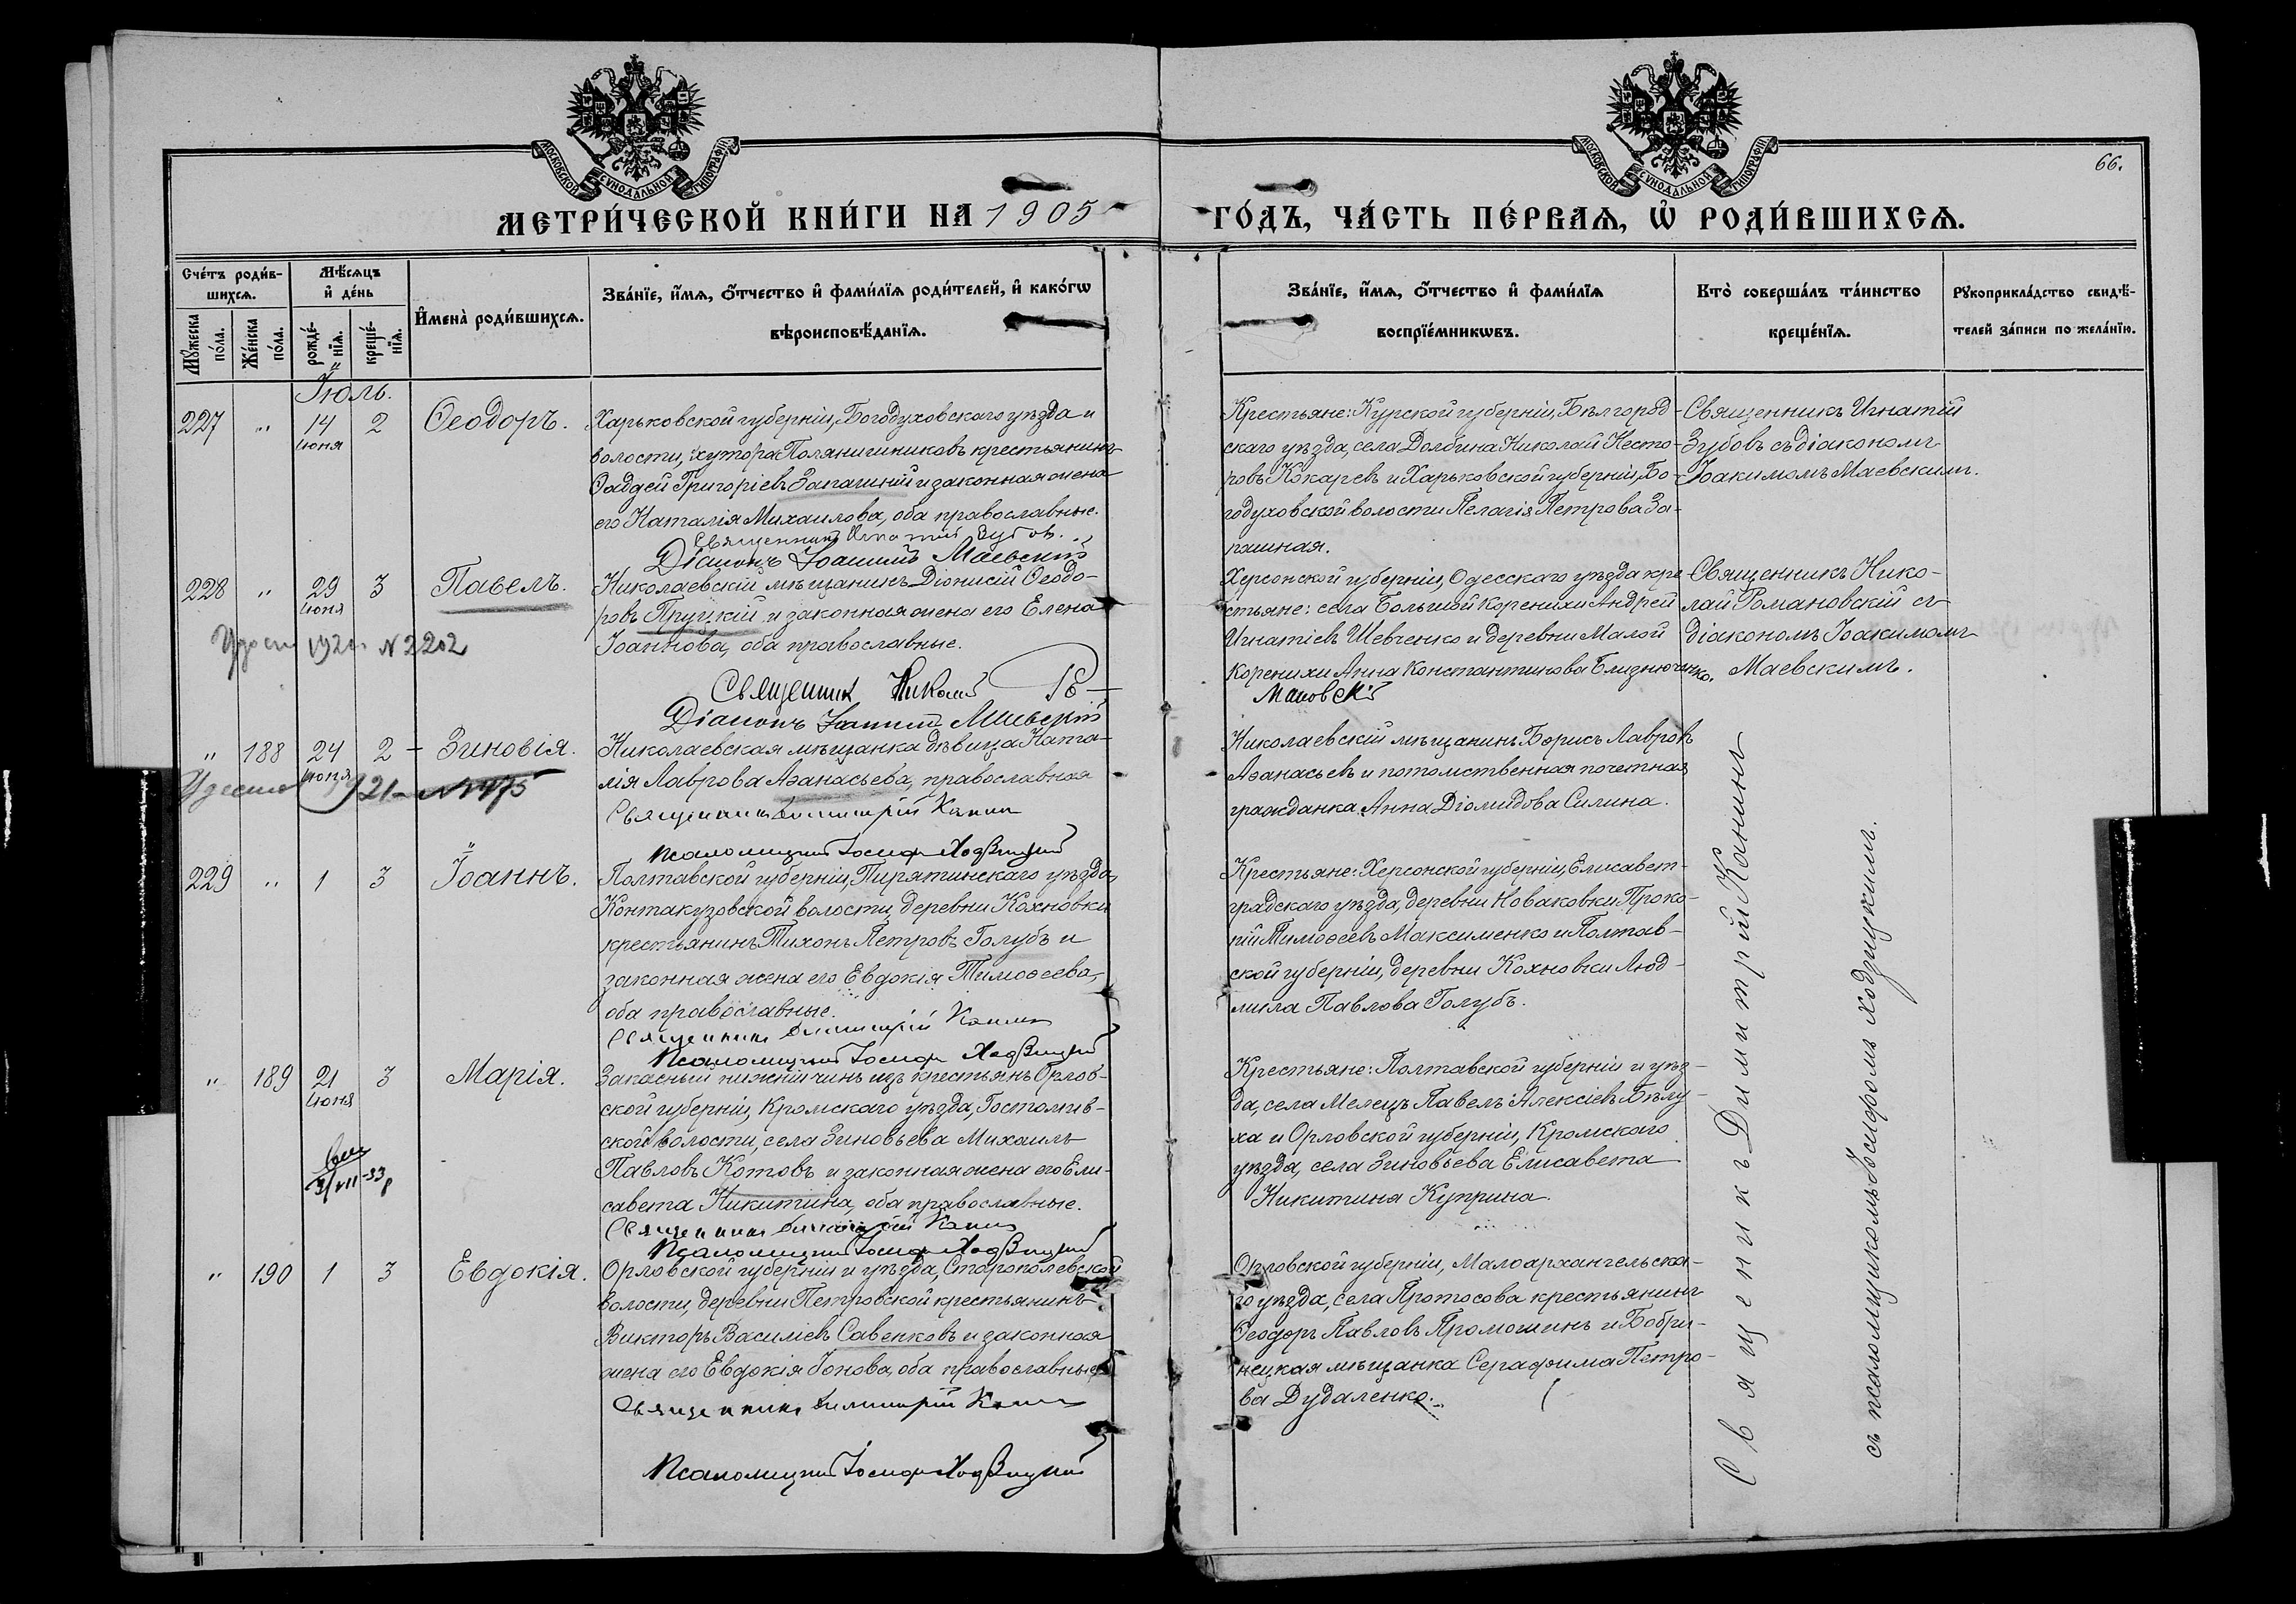 МОСКОВСКОЙ СѴНОДАЛЬНОЙ ТИПОГРАФІИ
МОСКОВСКОЙ СѴНОДАЛЬНОЙ ТИПОГРАФІИ
66.
МЕТРИ́ЧЕСКОЙ КНИ́ГИ НА 1905
ГО́ДЪ, ЧА́СТЬ ПЕ́РВАѦ, Ѡ РОДИ́ВШИХСѦ.
Сче́тъ роди́в-
шихсѧ.
Мѣ́сѧцъ
и де́нь
Мꙋ́жеска по́ла.
Же́нска по́ла.
рожде́-нїѧ.
креще́-нїѧ.
Имена̀ роди́вшихсѧ.
Зва́нїе, и́мѧ, ѻ́тчество и фами́лїѧ роди́телей, и како́гѡ
вѣроисповѣ́данїѧ.
Зва́нїе, и́мѧ, ѻ́тчество и фами́лїѧ
воспрїе́мникѡвъ.
Кто̀ соверша́лъ та́инство
креще́нїѧ.
Рꙋкоприкла́дство свидѣ́-
телей за́писи по жела́нїю.
Іюль.
227 " 14 іюня 2 Ѳеодоръ.
Харьковской губерніи, Богодуховскаго уѣзда и
волости, хутора Полянишниковъ крестьянинъ
Ѳаддей Григоріевъ Запашный и законная жена
его Наталія Михаилова, оба православные.
Священникъ Игнатій Зубовъ.
Діаконъ Іоакимъ Маевскій
Крестьяне: Курской губерніи, Бѣлгород-
скаго уѣзда, села Долбина Николай Несто-
ровъ Кокаревъ и Харьковской губерніи, Бо-
годуховской волости Пелагія Петрова За-
пашная.
Священникъ Игнатій
Зубовъ съ діакономъ
Іоакимомъ Маевскимъ.
228 " 29 іюня 3 Павелъ.
Николаевскій мѣщанинъ Діонисій Ѳеодо-
ровъ Пруцкій и законная жена его Елена
Іоаннова, оба православные.
192 N 2202
Священник Николай Ро-
мановскій
Діаконъ Іоакимъ Маевскій
Херсонской губерніи, Одесскаго уѣзда кре-
стьяне: села Большой Коренихи Андрей
Игнатіевъ Шевченко и деревни Малой
Коренихи Анна Константинова Близнюченко.
Священникъ Нико-
лай Романовскій съ
діакономъ Іоакимомъ
Маевскимъ.
" 188 24 іюня 2 Зиновія.
Николаевская мѣщанка дѣвица Ната-
лія Лаврова Аѳанасьева, православная
Священникъ Димитрій Канинъ
Псаломщикъ Іосифъ Ходзицкій
21 N 475
Николаевскій мѣщанинъ Борисъ Лавровъ
Аѳанасьевъ и потомственная почетная
гражданка Анна Діомидова Силина.
229 " 1 3 Іоаннъ.
Полтавской губерніи, Пирятинскаго уѣзда,
Контакузовской волости, деревни Кохновки
крестьянинъ Тихонъ Петровъ Голубъ и
законная жена его Евдокія Тимоѳеева,
оба православные.
Священникъ Димитрій Канинъ
Псаломщикъ Іосифъ Ходзицкій
Крестьяне: Херсонской губерніи, Елисавет-
градскаго уѣзда, деревни Новаковки Проко-
пій Тимоѳеевъ Максименко и Полтав-
ской губерніи, деревни Кохновки Люд-
мила Павлова Голубъ.
" 189 21 іюня 3 Марія.
Запасный нижній чинъ изъ крестьянъ Орлов-
ской губерніи, Кромскаго уѣзда, Гостомлев-
ской волости, села Зиновьева Михаилъ
Павловъ Котовъ и законная жена его Ели-
савета Никитина, оба православные.
Священникъ Димитрій Канинъ
Псаломщикъ Іосифъ Ходзицкій
3/VII-33
Крестьяне: Полтавской губерніи и уѣз-
да, села Мелецъ Павелъ Алексіевъ Бѣлу-
ха и Орловской губерніи, Кромскаго
уѣзда, села Зиновьева Елисавета
Никитина Куприна.
" 190 1 3 Евдокія.
Орловской губерніи и уѣзда, Старополевской
волости, деревни Петровской крестьянинъ
Викторъ Василіевъ Савенковъ и законная
жена его Евдокія Іонова, оба православные
Священникъ Димитрій Канинъ
Псаломщикъ Іосифъ Ходзицкій
Орловской губерніи, Малоархангельска-
го уѣзда, села Протосова крестьянинъ
Ѳеодоръ Павловъ Промошинъ и Бобри-
нецкая мѣщанка Серафима Петро-
ва Дудаленко.
Священникъ Димитрій Канинъ
съ псаломщикомъ Іосифомъ Ходзицкимъ.